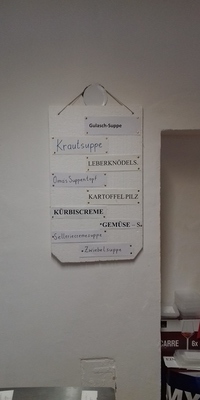 Gulasch-Suppe
Krautsuppe
LEBERKNÖDELS.
Omas Suppentopf
KARTOFFEL.PILZ
KÜRBISCREME
GEMÜSE - S.
Selleriecremesuppe
Zwiebelsuppe
CARRE
6x
MY